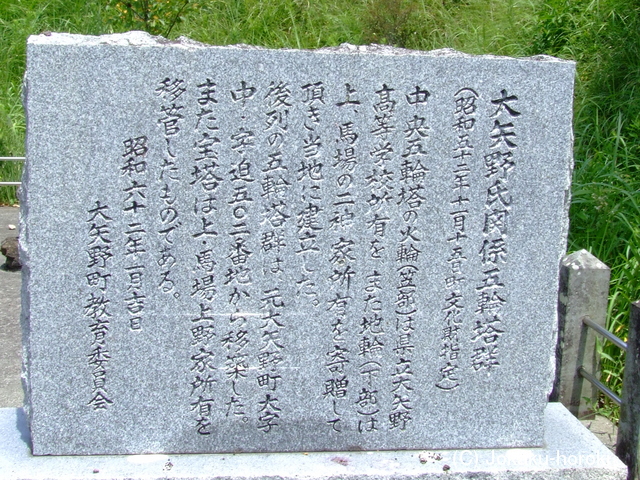 大矢野氏関係五輪塔群
(昭和五十二年十一月十五日町文化財指定)
中央五輪塔の火輪(笠部)は県立大矢野
高等学校所有を また地輪(下部)は
上・馬場の二神家所有を寄贈して
頂き当地に建立した。
後列の五輪塔群は 元大矢野町大字
中・字迫五〇二番地から移築した。
また宝塔は上・馬場上野家所有を
移管したものである。
昭和六十二年一月吉日
大矢野町教育委員会